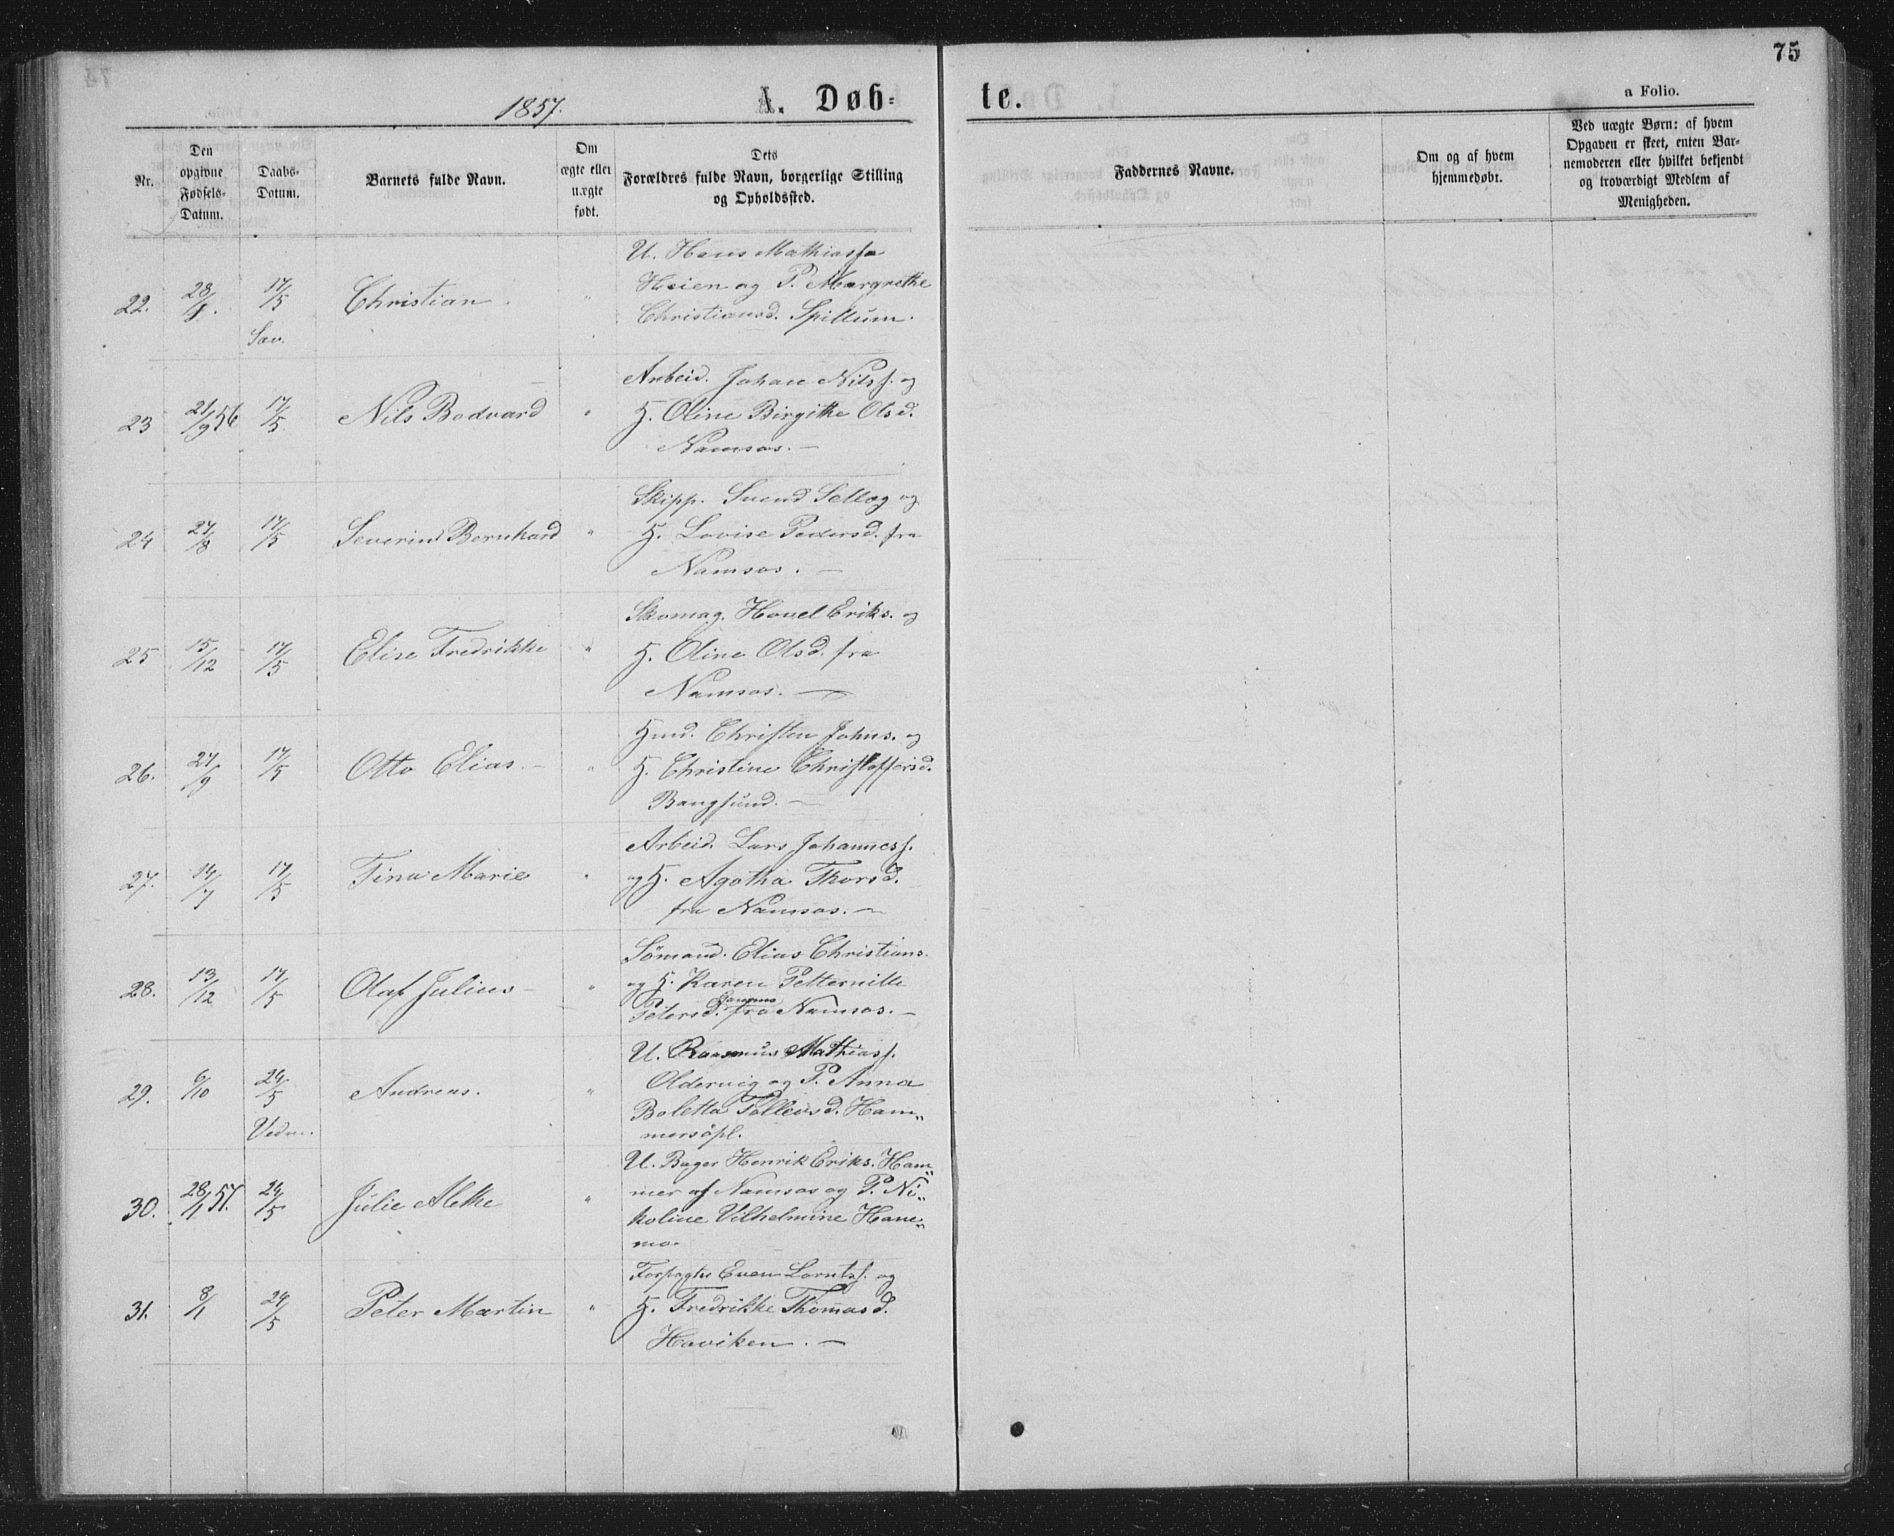 75
1857.
A. Døb-
te.
a Folio.
Nr.
Den opgivne Fødsels-Datum.
Daabs-Datum.
Barnets fulde Navn.
Om ægte eller uægte født.
Dets Forældres fulde Navn, borgerlige Stilling og Opholdssted.
Faddernes Navne.
Om og af hvem hjemmedøbt.
Ved uægte Børn: af hvem Opgaven er skeet, enten Barnemoderen eller hvilket bekjendt og troværdigt Medlem af Menigheden.
U. Hans Mathiassø
22. 28/8. 17/5 Christian. " Heien og P. Margrethe
Sav. Christiansd. Spillum.
Arbeid. Johan Nilsf. og
23 21/9 56 17/5 Nils Bodvard " H. Oline Birgithe Olsd.
Namsos. —
Skipp. Svend Sellæg og
24 27/8 17/5 Severin Bernhard " H. Lovise Pedersd. fra
Namsos. —
Skomag. Hovel Eriks. og
25 15/12 17/5 Elise Fredrikke " H. Oline Olsd. fra
Namsos. —
Hmd. Christen Johns. og
26. 27/9 17/5 Otto Elias. — " H. Christine Christoffersd.
Bangsund. —
Arbeid. Lars Johannesf.
27. 14/7 17/5 Tina Marie " og H. Agatha Thorsd.
fra Namsos. —
Sømand. Elias Christians.
28. 13/12 17/5 Olaf Julius — " og H. Karen Petternille
Petersd. fra Namsos. —
U. Rasmus Mathiasf.
29. 6/10 24/5 Andreas. " Oldervig og P. Anna
Vedm. Boletta Tollevsd. Ham„
mersøpl.
U. Bager Henrik Eriks. Ham„
30. 28/1 57. 24/5 Julie Alethe " mer af Namsos og P. Ni„
koline Vilhelmine Hane„
mo.
Forpagter Even Lorntsf. og
31. 8/1 24/5 Peter Martin " H. Fredrikke Thomasd.
Haviken. —